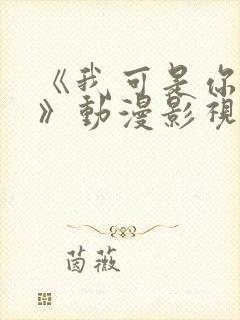 《我可是你
》動漫影視
茵薇